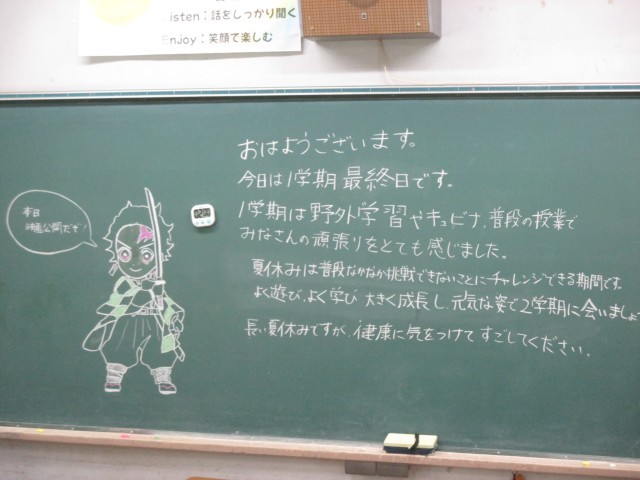 Listen：話をしっかり聞く
Enjoy：笑顔で楽しむ
おはようございます。
今日は1学期最終日です。
1学期は野外学習やキュビナ、普段の授業で
みなさんの頑張りをとても感じました。
夏休みは普段なかなか挑戦できないことにチャレンジできる期間です。
よく遊び、よく学び 大きく成長し、元気な姿で2学期に会いましょ
長い夏休みですが、健康に気をつけてすごしてください。
本日
映画公開だぞ！